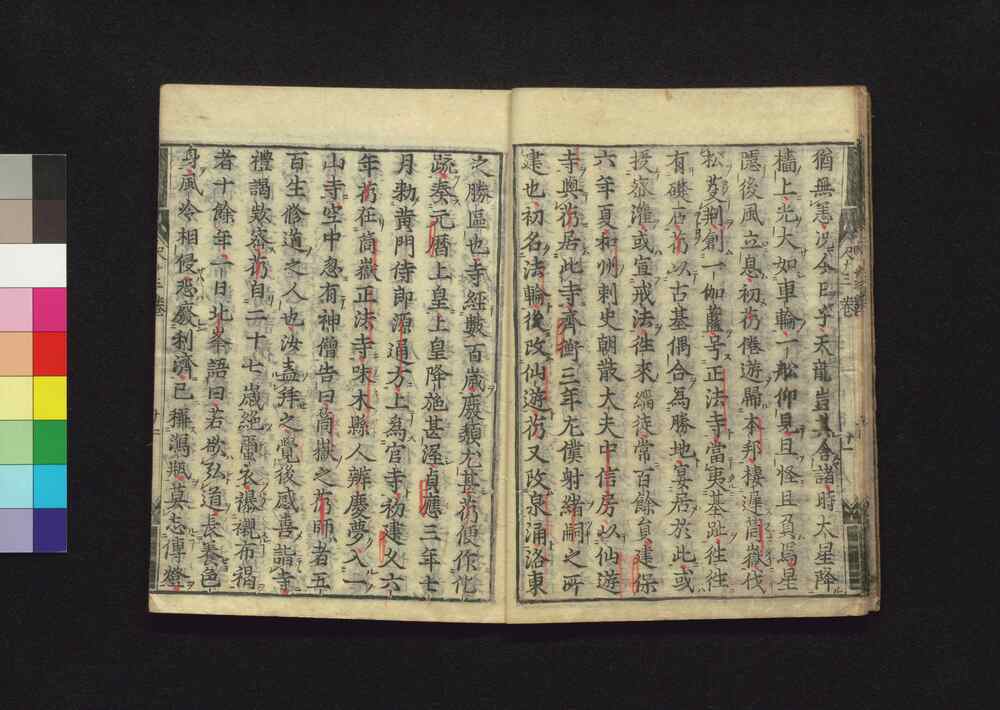 猶無恙況今日乎天龍豈其舍諸時大星降
檣上光大如車輪一舩仰見且怪且異焉星
隱後風立息初芿倦遊歸本邦棲遲嵩嶽伐
松芟荆創一伽藍号正法寺當夷基趾往往
有礎石芿以古基偶合為勝地宴居於此或
授密灌或宣戒法往來緇徒常百餘員建保
六年夏和州刺史朝散大夫中信房以仙遊
寺與芿居此寺齊衡三年左僕射緒嗣之所
建也初名法輪後改仙遊芿又改泉涌洛東
之勝區也寺經數百歲廢頹尤甚芿便作化
疏奏元曆上皇上皇降施甚渥貞應三年七
月勅黃門侍郎源通方上為官寺初建久六
年芿在嵩嶽正法寺味木縣人辨慶夢入一
山寺空中忽有神僧告曰嵩嶽之芿師者五
百生修道之人也汝盍拜之覺後感喜詣寺
禮謁歎密芿自二十七歲絶蠶衣襪襯布褐
者十餘年一日北峯語曰若欲弘道長養色
身風冷相侵恐廢利濟已稱瀉瓶莫忘傳燈